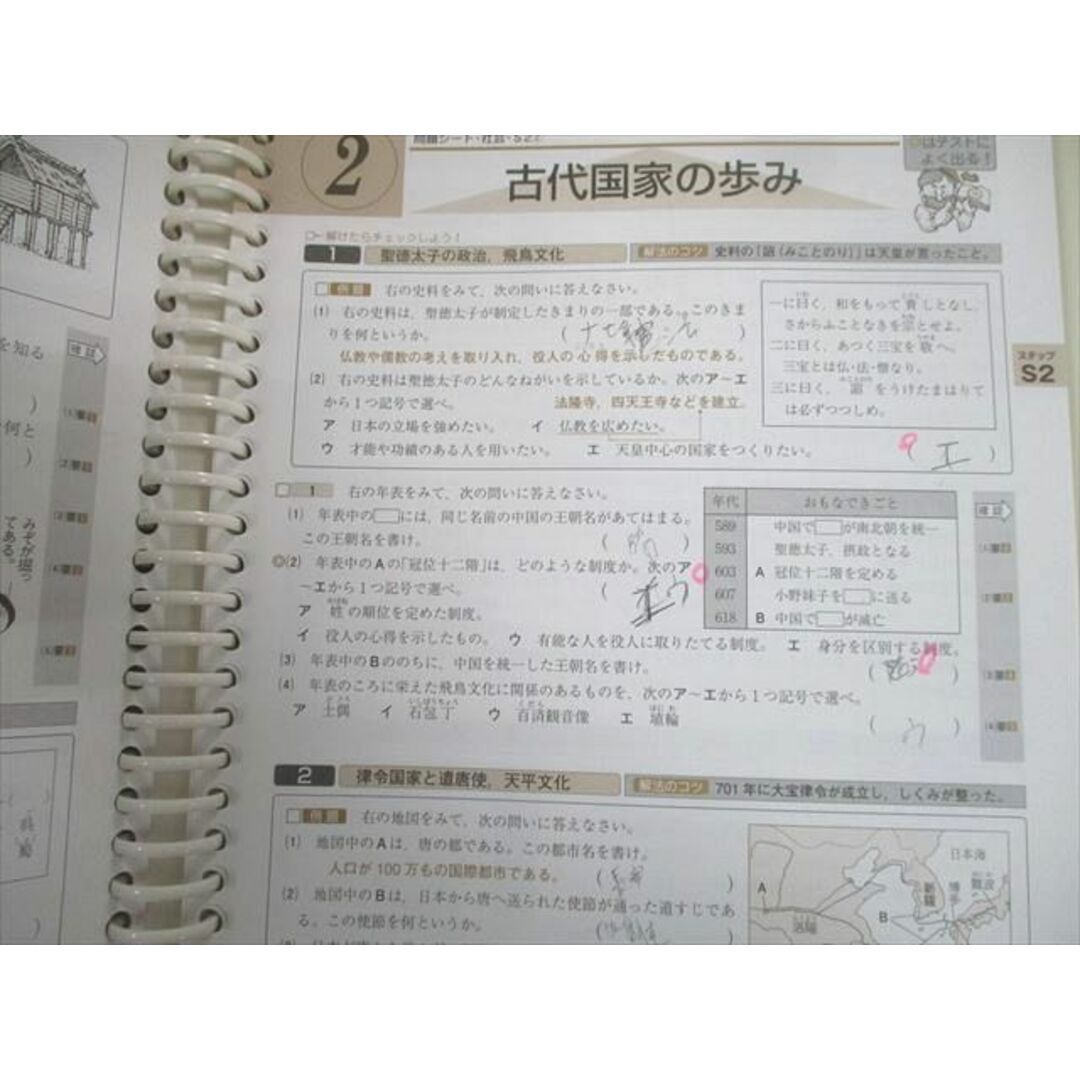 問題シート・社会・S2
2
古代国家の歩み
はテストに
よく出る！
解けたらチェックしよう！
1 聖徳太子の政治，飛鳥文化
解法のコツ 史料の「詔（みことのり）」は天皇が言ったこと。
例題 右の史料をみて，次の問いに答えなさい。
(1) 右の史料は，聖徳太子が制定したきまりの一部である。このきま
りを何というか。 ( )
仏教や儒教の考えを取り入れ，役人の心得を示したものである。
(2) 右の史料は聖徳太子のどんなねがいを示しているか。次のア～エ
から1つ記号で選べ。 法隆寺，四天王寺などを建立。
ア 日本の立場を強めたい。 イ 仏教を広めたい。
ウ 才能や功績のある人を用いたい。 エ 天皇中心の国家をつくりたい。
( エ )
一に曰く，和をもって貴しとなし，
さからふことなきを宗とせよ。
二に曰く，あつく三宝を敬へ。
三宝とは仏・法・僧なり。
三に曰く，詔をうけたまはりて
は必ずつつしめ。
ステップ
S2
1 右の年表をみて，次の問いに答えなさい。
(1) 年表中の□には，同じ名前の中国の王朝名があてはまる。
この王朝名を書け。 ( )
◎(2) 年表中のAの「冠位十二階」は，どのような制度か。次のア
～エから1つ記号で選べ。 ( ウ )
ア 姓の順位を定めた制度。
イ 役人の心得を示したもの。 ウ 有能な人を役人に取りたてる制度。 エ 身分を区別する制度。
(3) 年表中のBののちに，中国を統一した王朝名を書け。 ( )
(4) 年表のころに栄えた飛鳥文化に関係のあるものを，次のア～エから1つ記号で選べ。
ア 土偶 イ 石包丁 ウ 百済観音像 エ 埴輪
( ウ )
年代 おもなできごと
589 中国で□が南北朝を統一
593 聖徳太子，摂政となる
603 A 冠位十二階を定める
607 小野妹子を□に送る
618 B 中国で□が滅亡
確認
2 律令国家と遣唐使，天平文化
解法のコツ 701年に大宝律令が成立し，しくみが整った。
例題 右の地図をみて，次の問いに答えなさい。
(1) 地図中のAは，唐の都である。この都市名を書け。
人口が100万もの国際都市である。 ( )
(2) 地図中のBは，日本から唐へ送られた使節が通った道すじであ
る。この使節を何というか。 ( )
日本海
A
新羅
博多
難波
B
洛陽
を知る
確認
何と
みぞが掘っ
てある。